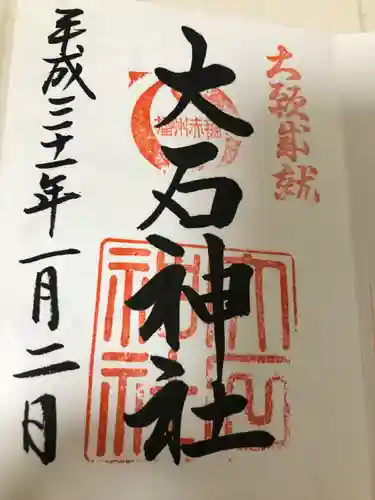 大願成就
播州赤穂
大石神社
大石神社
平成三十一年一月二日